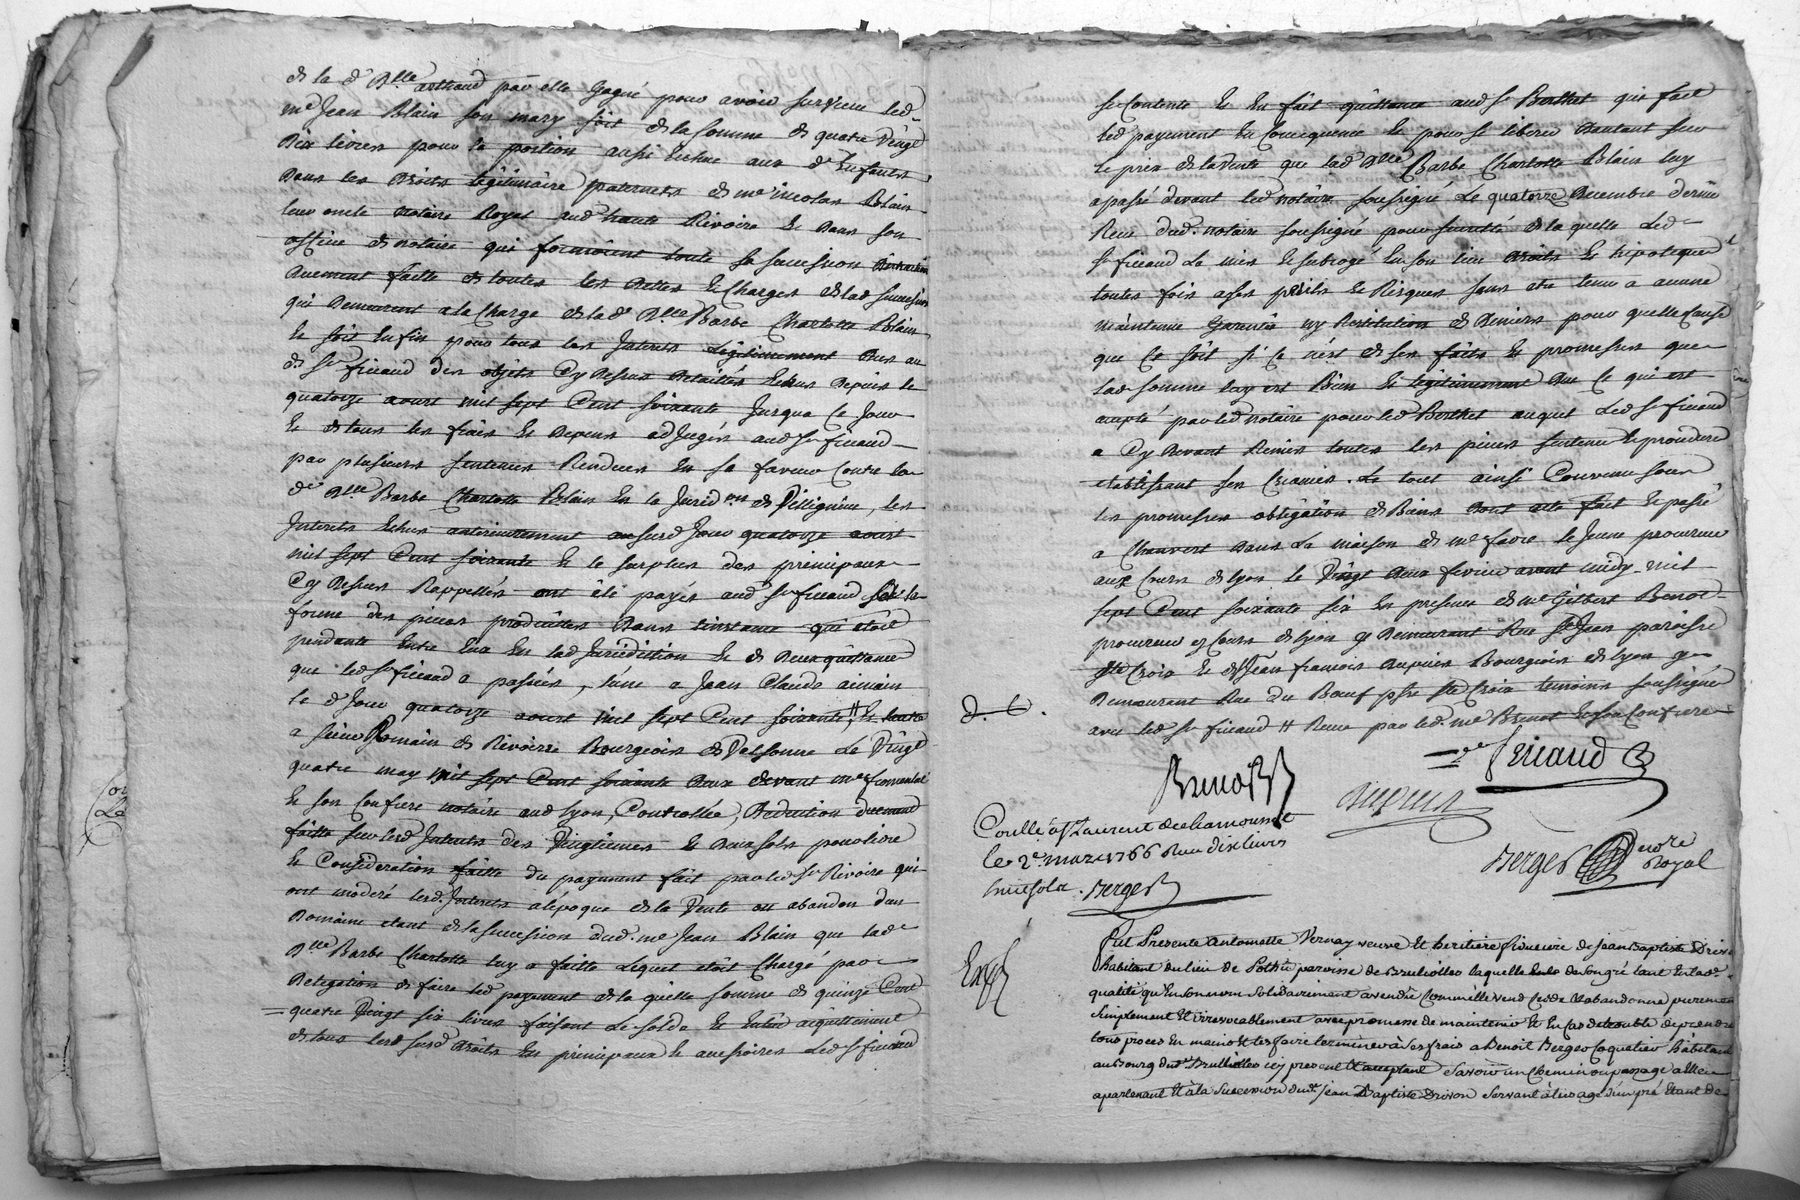 de la de Dlle arthaud par elle gagné pour avoir survecu led
me Jean Blain son mary soit de la somme de quatre Vingt
Dix livres pour la portion aussi Echue aux de Enfants
Dans les Droits légitimaire paternels de me nicolas Blain
leur oncle notaire Royal aud haute Rivoire Et Dans son
office de notaire qui formoient toute sa succession
Duement faitte de toutes les Dettes Et Charges de lad succession
qui Demeurent a la Charge de la de Dlle Barbe Charlotte Blain
Et soit Enfin pour tous les Interets Légitimement Dus au
de Sr ficaud des objets Cy Dessus Détaillés Echus Depuis le
quatorze aoust mil sept Cent soixante Jusqua Ce Jour
Et de tous les frais Et Depens adJugés aud Sr ficaud
par plusieurs sentences Renduës En sa faveur Contre la
de Dlle Barbe Charlotte Blain En la Jurid on de
Interets Echus anterieurement ausurd Jour quatorze aoust
mil sept Cent soixante Et le surplus des principaux
Cy Dessus Rappellés ont été payés aud Sr ficaud
forme des pieces produittes Dans l'instance qui étoit
pendante Entre Eux En lad Juridiction Et de Deux quittances
que led Sr ficaud a passées, l'une a Jean Claude
le d Jour quatorze aoust mil sept Cent soixante # Et lautre
a sieur Romain de Rivoirre Bourgeois de Valsonne Le Vingt
quatre may mil sept Cent soixante Deux devant me fromental
Et son Confrere notaire aud Lyon, Controllée, Déduction duement
faitte sur lesd Interets des Vingtiemes Et Deux sols pour livre
Et Consideration faitte du payement fait par led Sr Rivoire qui
ont modéré lesd. Interets a l'époque de la Vente ou abandon d'un
Domaine étant de la succession dud. me Jean Blain que lad
Dlle Barbe Charlotte luy a faitte Lequel étoit Chargé par
Délégation de faire led payement de la quelle somme de quinze Cent
quatre Vingt six livres faisant Le solde Et Entier acquittement
de tous lesd surd Droits En principaux Et accessoires Led Sr ficaud
se Contente Et En fait quittance aud Sr Berthet qui fait
led payement En Consequence Et pour se liberer Dautant sur
le prix de la Vente que lad Dlle Barbe Charlotte Blain luy
a passé devant led notaire soussigné Le quatorze Decembre dernier
Reçu dud. notaire soussigné pour sureté de la quelle Led
Sr ficaud La mis Et subrogé En son lieu Droits Et hipoteques
toutes fois a ses perils Et Risques sans etre tenu a aucune
maintenue Garentie ny Restitution de Deniers pour quelle Cause
que Ce soit si Ce n'est de ses faits Et promesses que
lad somme luy est Bien Et légitimement Due Ce qui est
accepté par led notaire pour led Berthet auquel Led Sr ficaud
a Cy Devant Remis toutes les pieces sentences Et procedure
établissant ses Créances. Le tout ainsi Convenu sous
les promesses obligation de Biens Dont acte fait Et passé
a Chauvert Dans La maison de me favre le Jeune procureur
aux Cours de Lyon le Vingt Deux fevrier avant midy mil
sept Cent soixante six En presence de me Gilbert Benoit
procureur es Cours de Lyon y Demeurant Rue St Jean paroisse
Ste Croix Et de Sr Jean françois Dupuier Bourgeois de Lyon y
Demeurant Rue du Boeuf psse Ste Croix temoins soussignés
avec led Sr ficaud # Reçue par led. me Benoit Et son Confrere
d. C.
ficaud
Benoist
Dupuier
Conllé a St Laurent de chamousset
le 2e mars 1766 Reçu dix livres
huit sols. Berger
Berger nore Royal
Exp
Fut Presente antoinette Vernay veuve Et heritiere fiduciere de Jean Baptiste Drivon
habitant du lieu de Lothu paroisse de Brulliolles laquelle de son gré tant En lad.
qualité qu'En son nom solidairement a vendu Comme Elle vend cede Et abandonne purement
simplement Et irrevocablement avec promesse de maintenir Et En Cas de trouble de prendre
tous proces En mains Et les faire terminer à ses frais a Benoit Berger Coquetier habitant
au Bourg dud. Brulliolles icy present Et acceptant savoir un Chemin ou passage a Elle
apartenant Et à la succession dud. Jean Baptiste Drivon servant à l'usage d'un pré Etant de